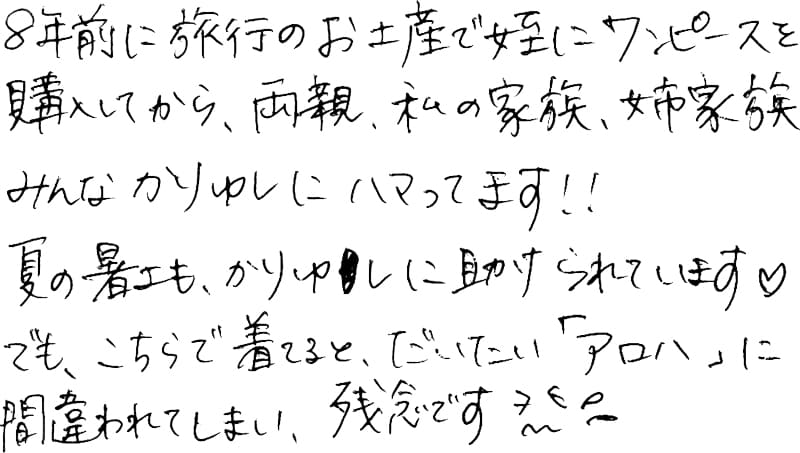 8年前に旅行のお土産で姪にワンピースを
購入してから、両親、私の家族、姉家族
みんなかりゆしにハマってます!!
夏の暑さも、かりゆしに助けられています♡
でも、こちらで着てると、だいたい「アロハ」に
間違われてしまい、残念です